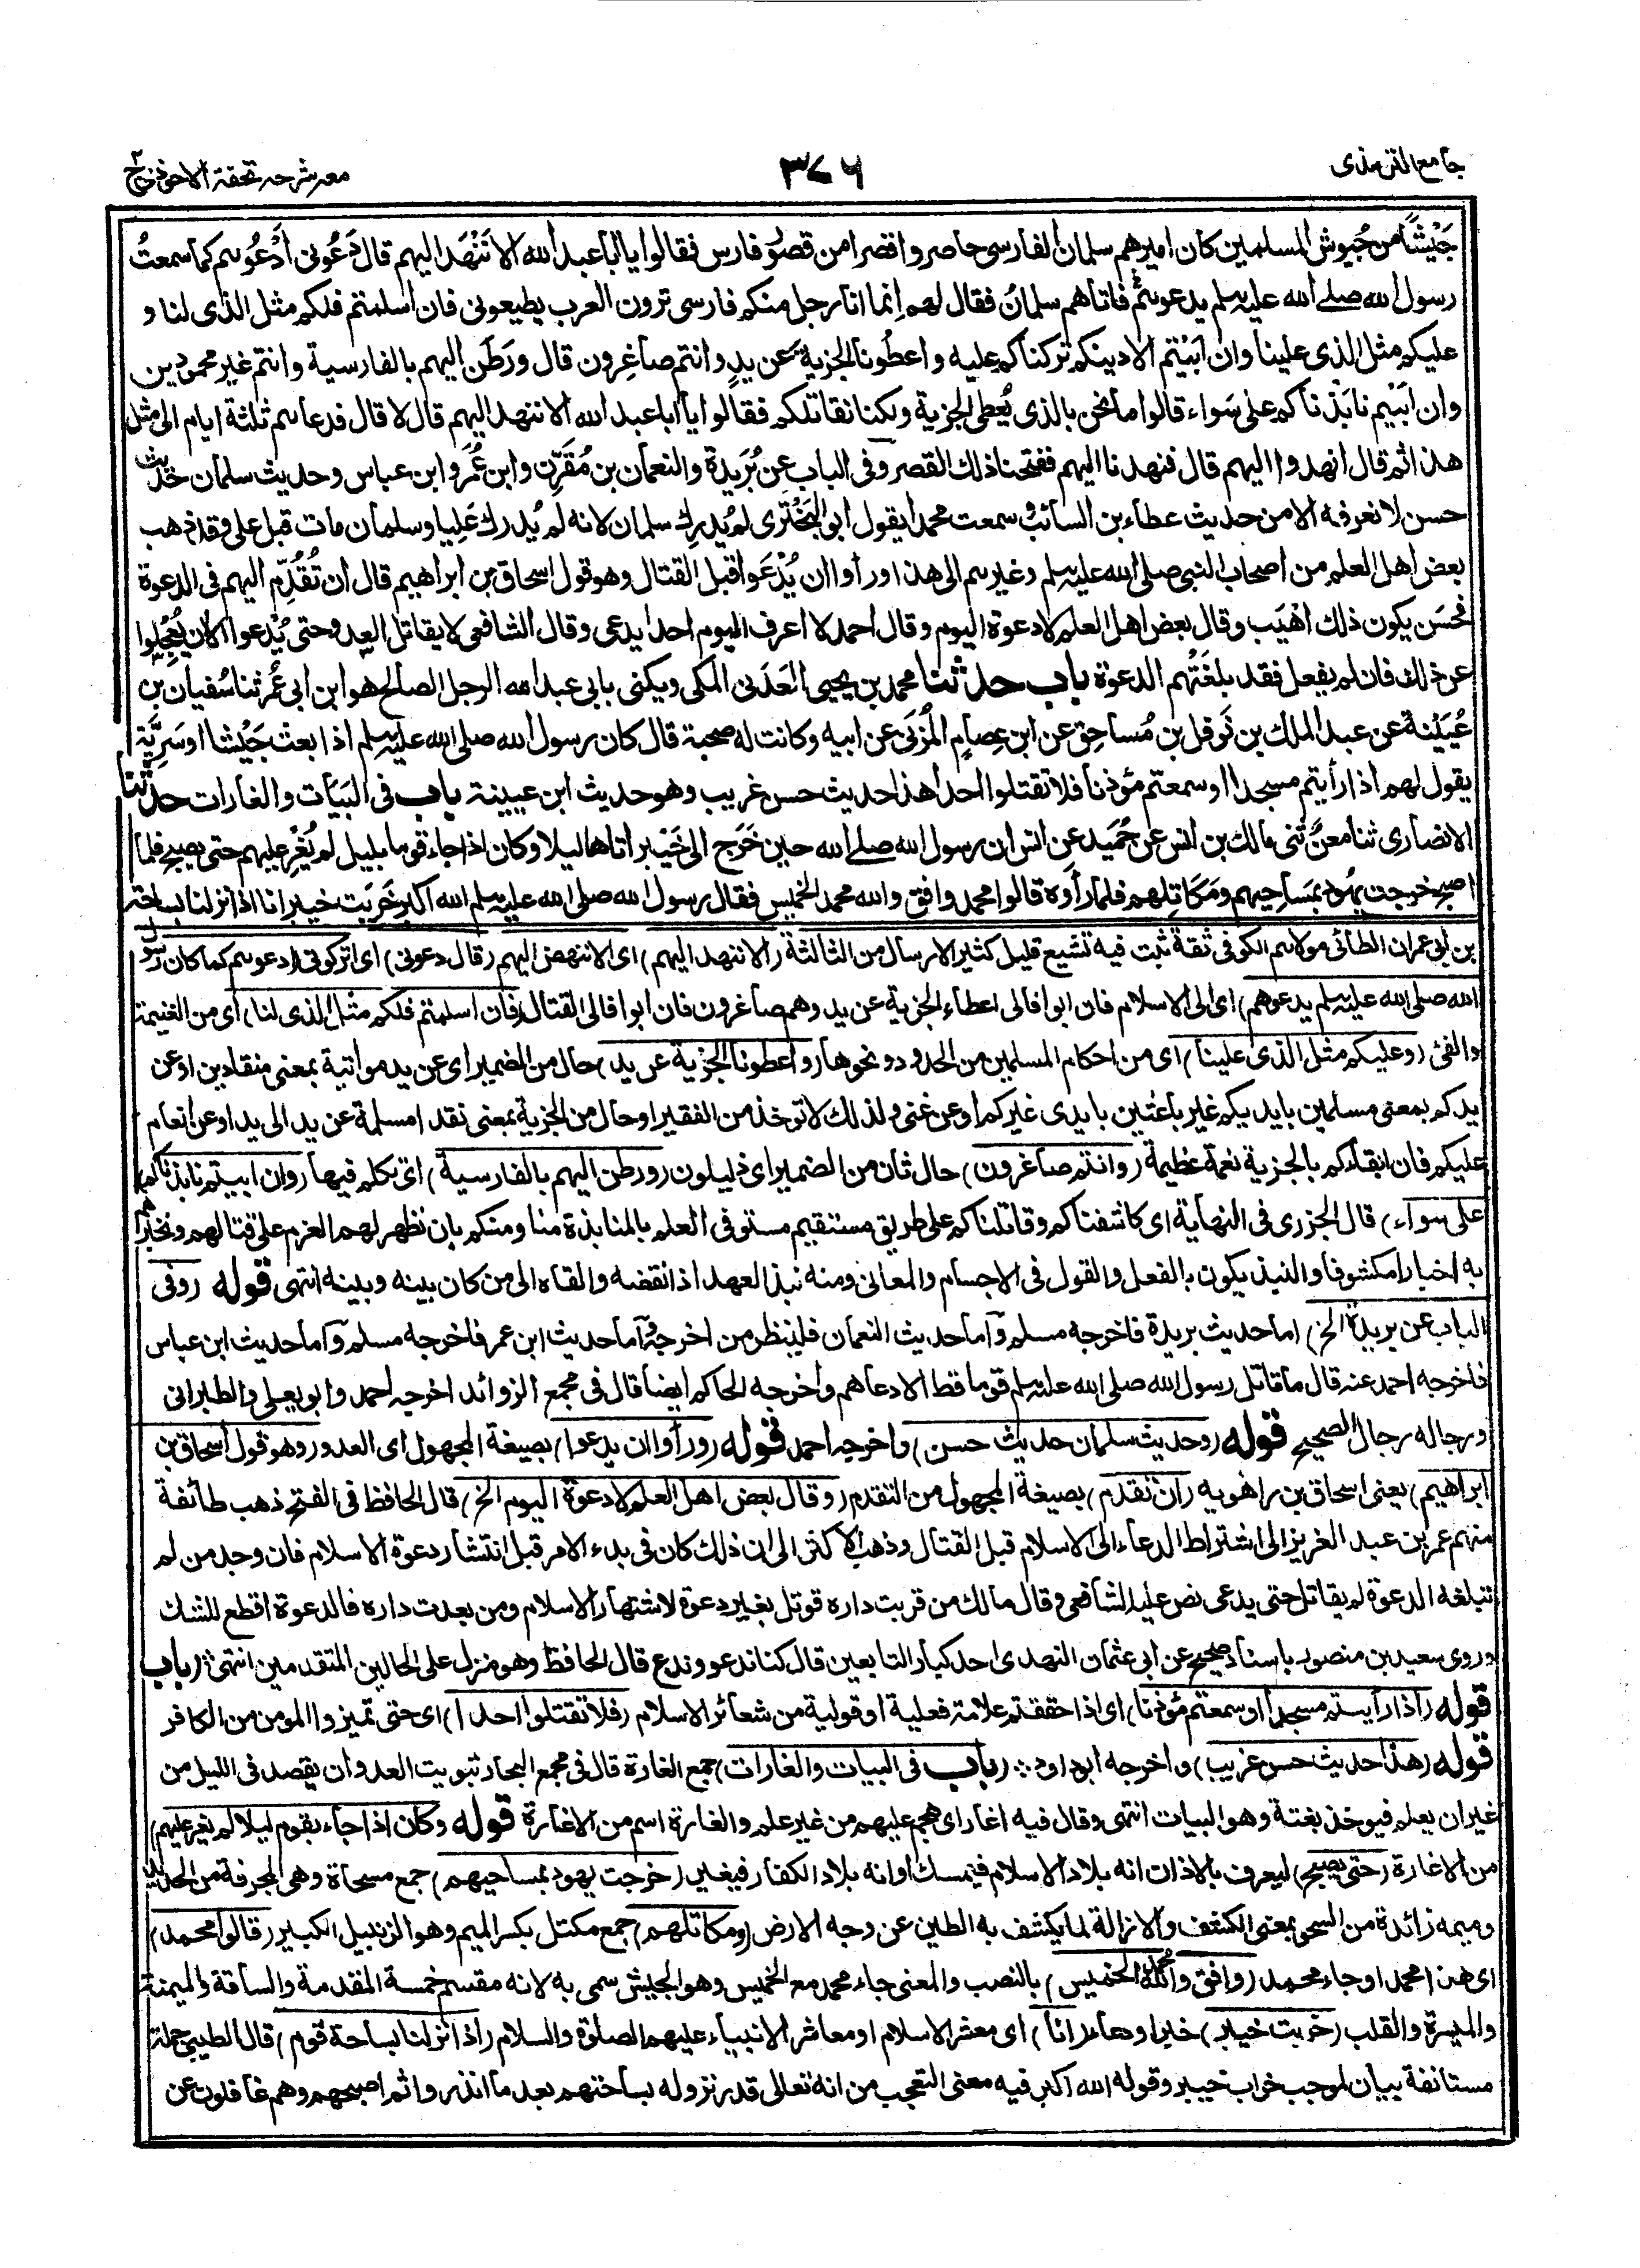 جامع الترمذى
٣٧٦
مع شرحه تحفة الاحوذى ج٢
جَيْشًا من جُيوش المسلمين كان اميرهم سلمان الفارسى حاصروا قصرا من قصور فارس فقالوا يا ابا عبد الله الا نَنْهَد اليهم قال دَعُونى اَدْعُوهم كما سمعتُ
رسول الله صلے الله عليه وسلم يدعوهم فاتاهم سلمانُ فقال لهم اِنما انا رجل منكم فارسى ترون العرب يطيعونى فان اسلمتم فلكم مثل الذى لنا و
عليكم مثل الذى علينا وان اَبَيْتُم الا دينكم تركناكم عليه واعطُونا الجزية عَن يدٍ وانتم صاغِرون قال ورَطَن اليهم بالفارسية وانتم غير محمودين
وان اَبَيْتم نابَذْناكم على سَواء قالوا ما نحن بالذى يُعطى الجزية ولكنا نقاتلكم فقالوا يا ابا عبد الله الا ننهد اليهم قال لا قال فدعاهم ثلثة ايام الى مثل
هذا ثم قال انهدوا اليهم قال فنهدنا اليهم ففتحنا ذلك القصر وفى الباب عن بُرَيدة والنعمان بن مُقَرِّن وابن عُمَر وابن عباس وحديث سلمان حديث
حسن لا نعرفه الا من حديث عطاء بن السائب وسمعت محمدا يقول ابو البَخْتَرى لم يُدرِك سلمان لانه لم يُدرك عَلِيا وسلمان مات قبل على وقد ذهب
بعض اهل العلم من اصحاب النبى صلى الله عليه وسلم وغيرهم الى هذا ورأوا ان يُدْعَوا قبل القتال وهو قول اسحاق بن ابراهيم قال ان تُقُدِّم اليهم فى الدعوة
فحَسَن يكون ذلك اَهْيَب وقال بعض اهل العلم لا دعوة اليوم وقال احمد لا اعرف اليوم احدا يدعى وقال الشافعى لا يقاتل العدو حتى يُدْعوا الا ان يعجلوا
عن ذلك فان لم يفعل فقد بلغَتْهُم الدعوة باب حدثنا محمد بن يحيى العَدَنى المكى ويكنى بابى عبد الله الرجل الصالح هو ابن ابى عُمَر ثنا سُفيان بن
عُيَيْنة عن عبد الملك بن نَوفل بن مُساحِق عن ابن عِصامٍ المُزَنى عن ابيه وكانت له صحبة قال كان رسول الله صلى الله عليه وسلم اذا بعث جَيْشا اوسَرِيَّة
يقول لهم اذا رأيتم مسجدا او سمعتم مؤذنا فلا تقتلوا احدا هذا حديث حسن غريب وهو حديث ابن عيينة باب فى البَيَات والغارات حدثنا
الانصارى ثنا معنٌ ثنى مالك بن انس عن حُمَيد عن انس ان رسول الله صلے الله حين خَرَج الى خَيْبر اتاها ليلا وكان اذا جاء قوما بليل لم يُغِرْ عليهم حتى يصبح فلما
اصبح خرجت يهُود بمَساحِيهم ومَكَاتِلهم فلما رأوه قالوا محمد وافق والله محمد الخميس فقال رسول الله صلى الله عليه وسلم الله اكبر خَرِبَت خيبر انا اذا نزلنا بساحة
بن ابى عمران الطائى مولاهم الكوفى ثقة ثبت فيه تشيع قليل كثير الارسال من الثالثة (الا ننهد اليهم) اى الا ننهض اليهم (قال دعونى) اى اتركونى (ادعوهم كما كان رسول
الله صلى الله عليه وسلم يدعوهم) اى الى الاسلام فان ابوا فالى اعطاء الجزية عن يد وهم صاغرون فان ابوا فالى القتال (فان اسلمتم فلكم مثل الذى لنا) اى من الغنيمة
والفئ (وعليكم مثل الذى علينا) اى من احكام المسلمين من الحدود ونحوها (واعطونا الجزية عن يد) حال من الضمير اى عن يد مواتية بمعنى منقادين اوعن
يدكم بمعنى مسلمين بايديكم غير باعثين بايدى غيركم اوعن غنى ولذلك لا توخذ من الفقير او حال من الجزية بمعنى نقدا مسلمة عن يد الى يد او عن انعام
عليكم فان ابقاءكم بالجزية نعمة عظيمة (وانتم صاغرون) حال ثان من الضمير اى ذليلون (ورطن اليهم بالفارسية) اى تكلم فيها (وان ابيتم نابذناكم
على سواء) قال الجزرى فى النهاية اى كاشفناكم وقاتلناكم على طريق مستقيم مستو فى العلم بالمنابذة منا ومنكم بان نظهر لهم العزم على قتالهم ونخبرهم
به اخبارا مكشوفا والنبذ يكون بالفعل والقول فى الاجسام والمعانى ومنه نبذ العهد اذا نقضه والقاه الى من كان بينه وبينه انتهى قوله (وفى
الباب عن بريدة الخ) اما حديث بريدة فاخرجه مسلم واما حديث النعمان فلينظر من اخرجه واما حديث ابن عمر فاخرجه مسلم واما حديث ابن عباس
فاخرجه احمد عنه قال ما قاتل رسول الله صلى الله عليه وسلم قوما قط الا دعاهم واخرجه الحاكم ايضا قال فى مجمع الزوائد اخرجه احمد وابو يعلى والطبرانى
ورجاله رجال الصحيح قوله (وحديث سلمان حديث حسن) واخرجه احمد قوله (ورأوا ان يدعوا) بصيغة المجهول اى العدو (وهو قول اسحاق بن
ابراهيم) يعنى اسحاق بن راهويه (ان تقدم) بصيغة المجهول من التقدم (وقال بعض اهل العلم لا دعوة اليوم الخ) قال الحافظ فى الفتح ذهب طائفة
منهم عمر بن عبد العزيز الى اشتراط الدعاء الى الاسلام قبل القتال وذهب الاكثر الى ان ذلك كان فى بدء الامر قبل انتشار دعوة الاسلام فان وجد من لم
تبلغه الدعوة لم يقاتل حتى يدعى نص عليه الشافعى وقال مالك من قربت داره قوتل بغير دعوة لاشتهار الاسلام ومن بعدت داره فالدعوة اقطع للشك
وروى سعيد بن منصور باسناد صحيح عن ابى عثمان النهدى احد كبار التابعين قال كنا ندعو وندع قال الحافظ وهو منزل على الحالين المتقدمين انتهى (باب
قوله (اذا رأيتم مسجدا او سمعتم مؤذنا) اى اذا حققتم علامة فعلية او قولية من شعائر الاسلام (فلا تقتلوا احدا) اى حتى تميزوا المومن من الكافر
قوله (هذا حديث حسن غريب) واخرجه ابوداود (باب فى البيات والغارات) جمع الغارة قال فى مجمع البحار تبييت العدو ان يقصد فى الليل من
غير ان يعلم فيوخذ بغتة وهو البيات انتهى وقال فيه اغار اى هجم عليهم من غير علم والغارة اسم من الاغارة قوله وكان اذا جاء بقوم ليلا لم يغر عليهم)
من الاغارة (حتى يصبح) ليعرف بالاذان انه بلاد الاسلام فيمسك او انه بلاد الكفار فيغير (خرجت يهود بمساحيهم) جمع مسحاة وهى المجرفة من الحديد
وميمه زائدة من السحو بمعنى الكشف والازالة لما يكشف به الطين عن وجه الارض (ومكاتلهم) جمع مكتل بكسر الميم وهو الزنبيل الكبير (قالوا محمد)
اى هذا محمد او جاء محمد (وافق والله محمد الخميس) بالنصب والمعنى جاء محمد مع الخميس وهو الجيش سمى به لانه مقسم خمسة المقدمة والساقة والميمنة
والميسرة والقلب (خربت خيبر) خبر او دعاء (انا) اى معشر الاسلام او معاشر الانبياء عليهم الصلوة والسلام (اذا نزلنا بساحة قوم) قال الطيبى جملة
مستانفة بيان لموجب خراب خيبر وقوله الله اكبر فيه معنى التعجب من انه تعالى قدر نزوله بساحتهم بعد ما انذروا ثم اصبحهم وهم غافلون عن